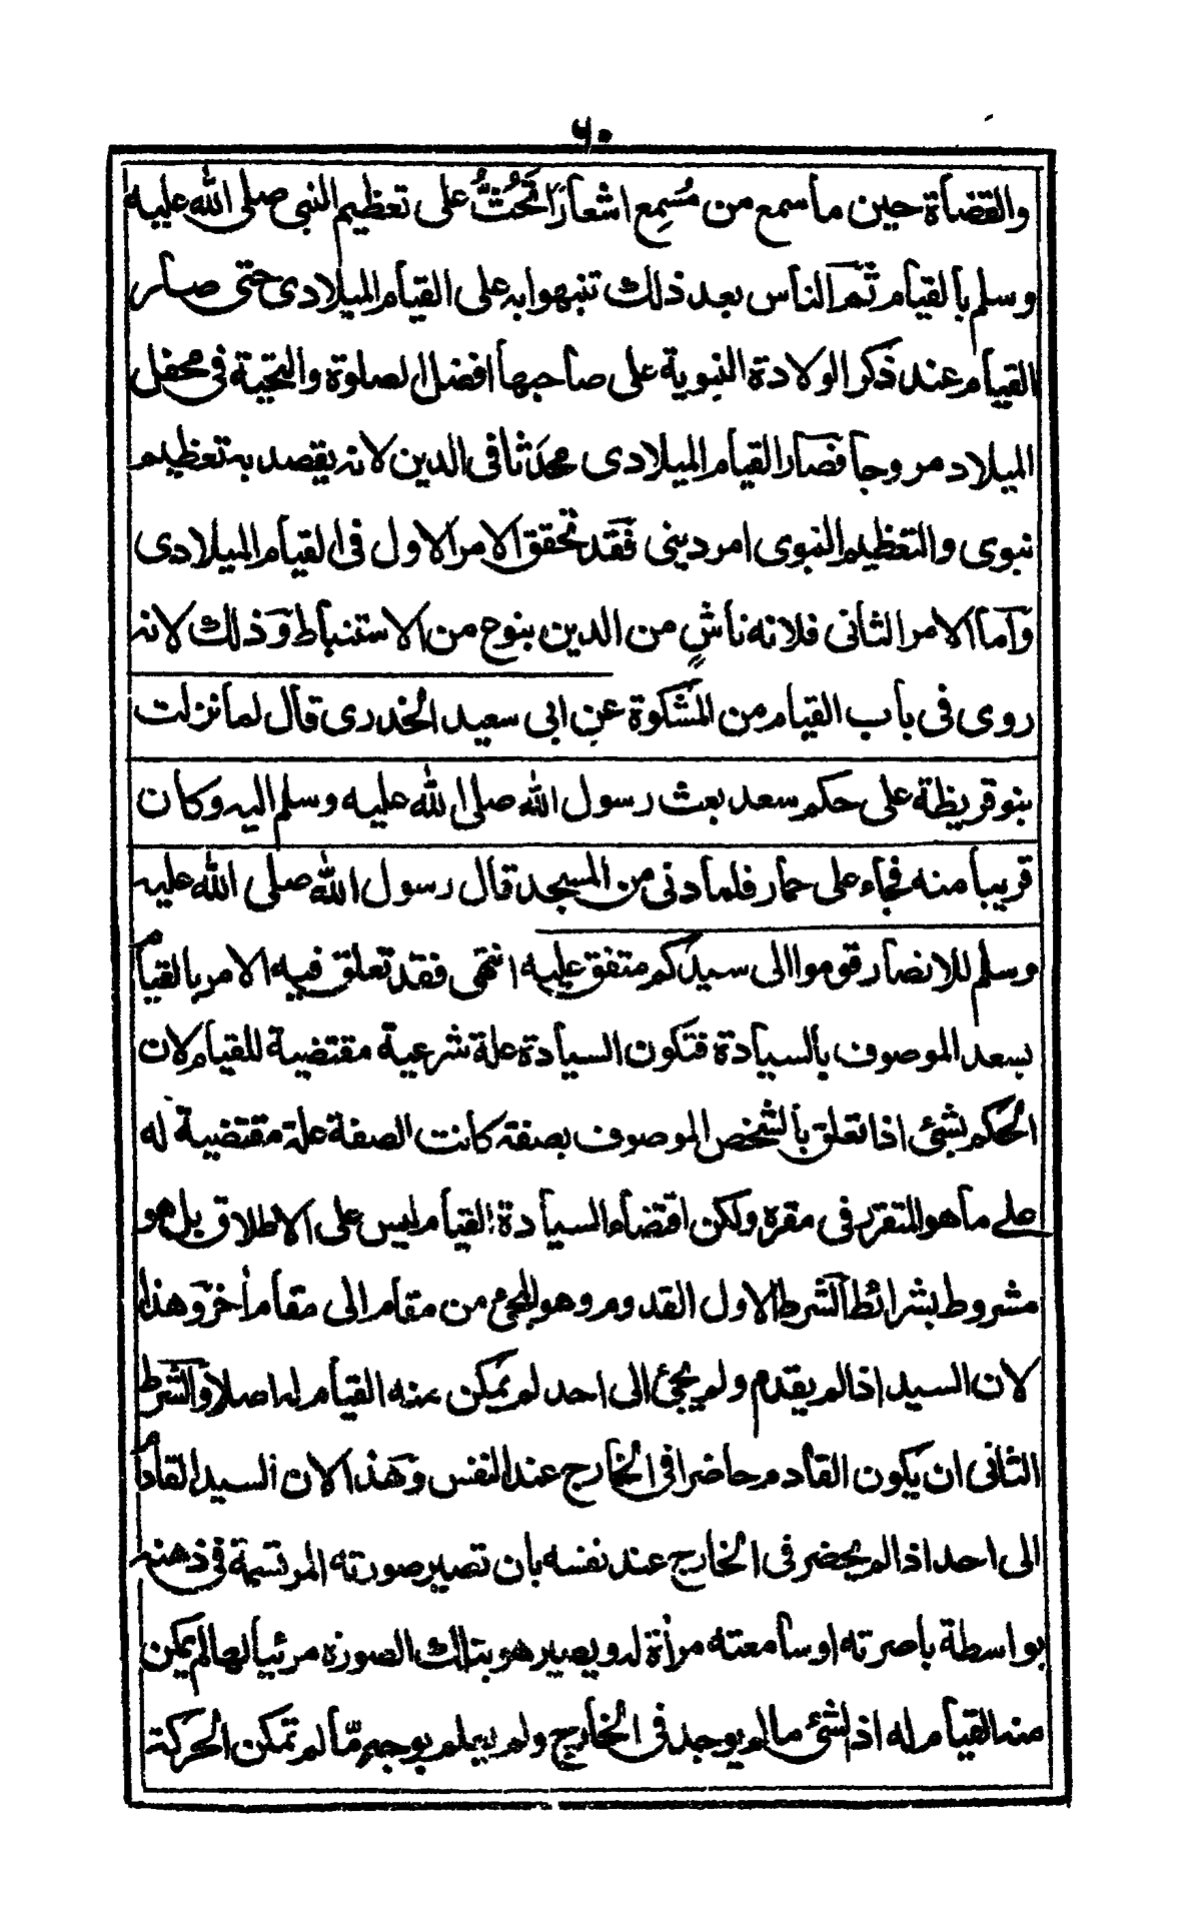 ٦٠
والقضاة حين ما سمع من مُسْمِع اشعارًا تَحُثُّ على تعظيم النبى صلى الله عليه
وسلم بالقيام ثم الناس بعد ذلك تنبهوا به على القيام الميلادى حتى صار
القيام عند ذكر الولادة النبوية على صاحبها افضل الصلوة والتحية فى محفل
الميلاد مروجا فصار القيام الميلادى محدثا فى الدين لانه يقصد به تعظيم
نبوى والتعظيم النبوى امر دينى فقد تحقق الامر الاول فى القيام الميلادى
وَاَما الامر الثانى فلانه ناشٍ من الدين بنوع من الاستنباط وَذلك لانه
روى فى باب القيام من المشكوة عن ابى سعيد الخدرى قال لما نزلت
بنو قريظة على حكم سعد بعث رسول الله صلى الله عليه وسلم اليه وكان
قريبا منه فجاء على حمار فلما دنى من المسجد قال رسول الله صلى الله عليه
وسلم للانصار قوموا الى سيدكم متفق عليه انتهى فقد تعلق فيه الامر بالقيام
بسعد الموصوف بالسيادة فتكون السيادة علة شرعية مقتضية للقيام لان
الحكم بشئ اذا تعلق بالشخص الموصوف بصفة كانت الصفة علة مقتضية له
على ما هو المتقرر فى مقره ولكن اقتضاء السيادة القيام ليس على الاطلاق بل هو
مشروط بشرائط الشرط الاول القدوم وهو المجئ من مقام الى مقام اٰخر وَهذا
لان السيد اذا لم يقدم ولم يجئ الى احد لم يمكن منه القيام له اصلا وَالشرط
الثانى ان يكون القادم حاضرا فى الخارج عند النفس وَهذا لان السيد القادم
الى احد اذا لم يحضر فى الخارج عند نفسه بان تصير صورته المرتسمة فى ذهنه
بواسطة باصرته او سامعته مرأة له ويصير هو بتلك الصورة مرئيا لها لم يمكن
منه القيام له اذ الشئ ما لم يوجد فى الخارج ولم يعلم بوجهٍ مّا لم تمكن الحركة